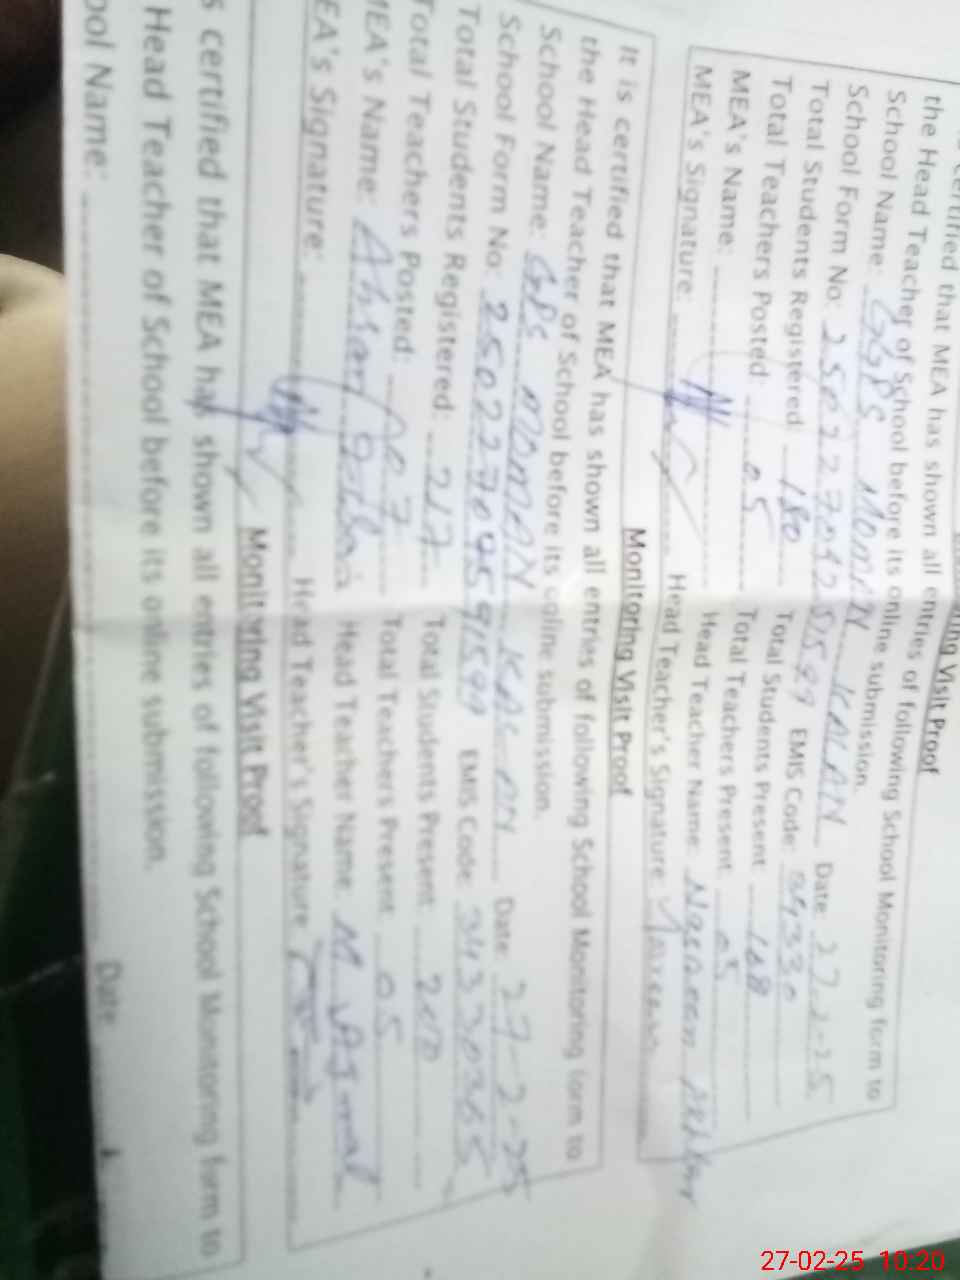 Monitoring Visit Proof
certified that MEA has shown all entries of following School Monitoring form to
the Head Teacher of School before its online submission.
School Name: GGPS MOMIN KALAN Date: 27-2-25
School Form No: EMIS Code:
Total Students Registered: 180 Total Students Present: 168
Total Teachers Posted: 05 Total Teachers Present: 05
MEA's Name: Head Teacher Name: Nasreen Akhtar
MEA's Signature: Head Teacher's Signature:
Monitoring Visit Proof
It is certified that MEA has shown all entries of following School Monitoring form to
the Head Teacher of School before its online submission.
School Name: GPS MOMIN KALAN Date: 27-2-25
School Form No: EMIS Code: 34330365
Total Students Registered: 217 Total Students Present:
Total Teachers Posted: 07 Total Teachers Present: 05
MEA's Name: Ahsan Head Teacher Name: M. Ajmal
EA's Signature: Head Teacher's Signature:
Monitoring Visit Proof
s certified that MEA has shown all entries of following School Monitoring form to
Head Teacher of School before its online submission.
ool Name: Date
27-02-25 10:20